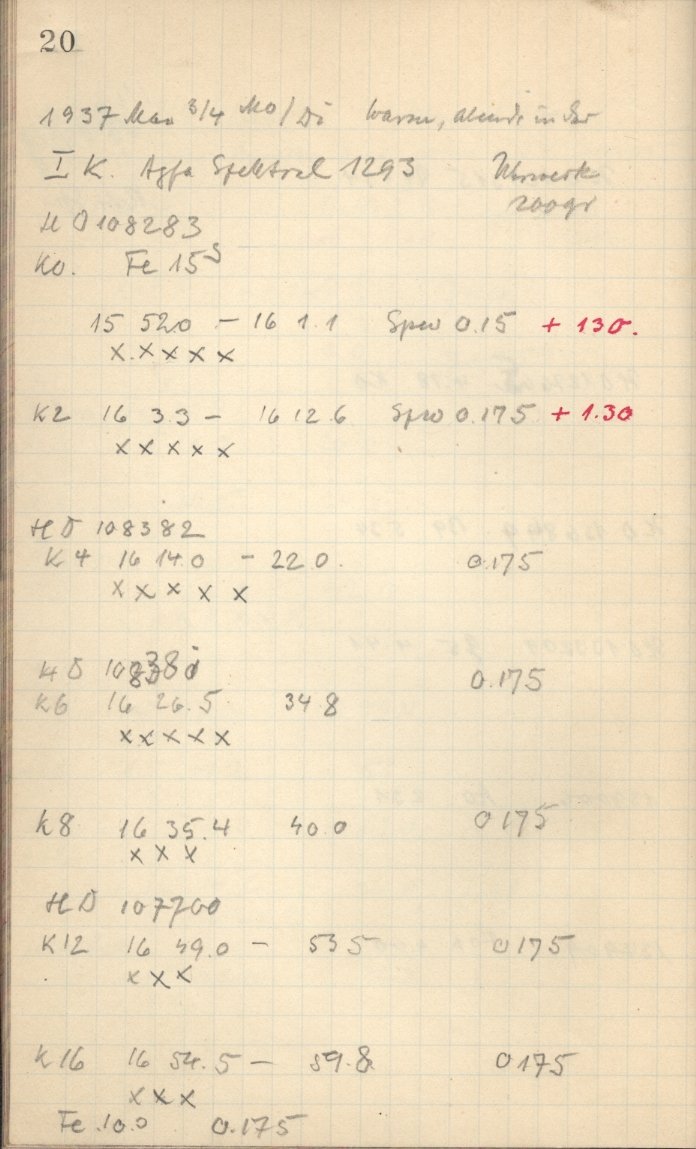 20
1937 Mai 3/4 Mo/Di warm, abends in der
I K. Agfa Spektral 1293 Uhrwerk
200gr
HD 108283
K0. Fe 15s
15 52.0 — 16 1.1 Spw 0.15 + 130.
x x x x x
K2 16 3.3 — 16 12.6 Spw 0.175 + 1.30
x x x x x
HD 108382
K4 16 14.0 — 22.0. 0.175
x x x x x
HD 0.175
K6 16 26.5 34.8
x x x x x
K8 16 35.4 40.0 0175
x x x
HD 107700
K12 16 49.0 — 53 5 0175
x x x
K16 16 54.5 — 59.8 0175
x x x
Fe 10.0 0.175